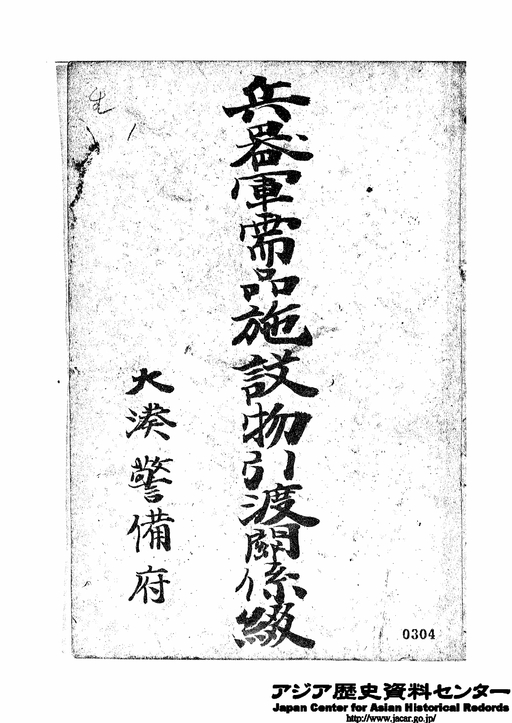 兵器軍需品施設物引渡關係綴
大湊警備府
0304
アジア歴史資料センター
Japan Center for Asian Historical Records
http://www.jacar.go.jp/